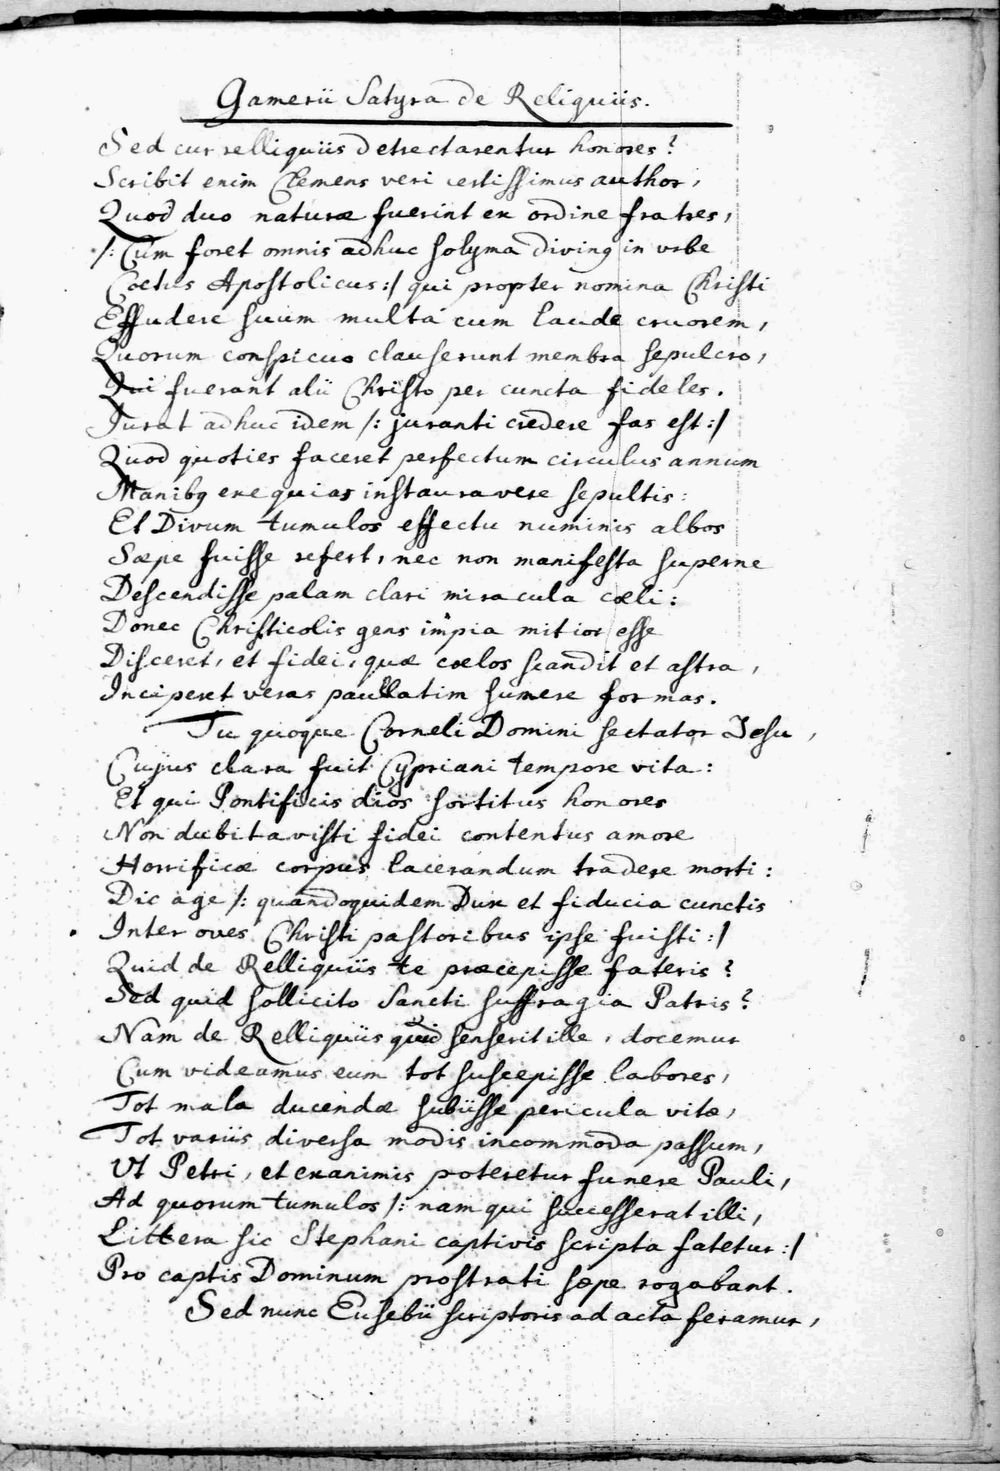 Gamerii Satyra de Reliquiis.
Sed cur relliquiis detrectarentur honores?
Scribit enim Clemens veri certissimus author,
Quod duo naturæ fuerint ex ordine fratres,
/: Cùm foret omnis adhuc solyma divinq in vrbe
Coetus Apostolicus :/ qui propter nomina Christi
Effudere suum multâ cum laude cruorem,
Quorum conspicuo clauserunt membra sepulcro,
Qui fuerant alii Christo per cuncta fideles.
Jurat adhuc idem /: juranti credere fas est :/
Quod quoties faceret perfectum circulus annum
Manibq exequias instauravere sepultis:
Et Divum tumulos effectu numinis albos
Sæpe fuisse refert, nec non manifesta superne
Descendisse palam clari miracula cœli:
Donec Christicolis gens impia mitior esse
Disceret, et fidei, quæ cœlos scandit et astra,
Inciperet veras paullatim sumere formas.
Tu quoque Corneli Domini sectator Jesu,
Cujus clara fuit Cypriani tempore vita:
Et qui Pontificis dios sortitus honores
Non dubitavisti fidei contentus amore
Horrificæ corpus lacerandum tradere morti:
Dic age /: quandoquidem Dux et fiducia cunctis
Inter oves Christi pastoribus ipse fuisti :/
Quid de Relliquiis te præcepisse fateris?
Sed quid sollicito Sancti suffragia Patris?
Nam de Relliquiis quid senserit ille, docemur
Cum videamus eum tot suscepisse labores,
Tot mala ducendæ subiisse pericula vitæ,
Tot variis diversa modis incommoda passum,
Ut Petri, et exanimis poteretur funere Pauli,
Ad quorum tumulos /: nam qui successerat illi,
Littera sic Stephani captivis scripta fatetur :/
Pro captis Dominum prostrati sæpe rogabant.
Sed nunc Eusebii scriptoris ad acta feramur,